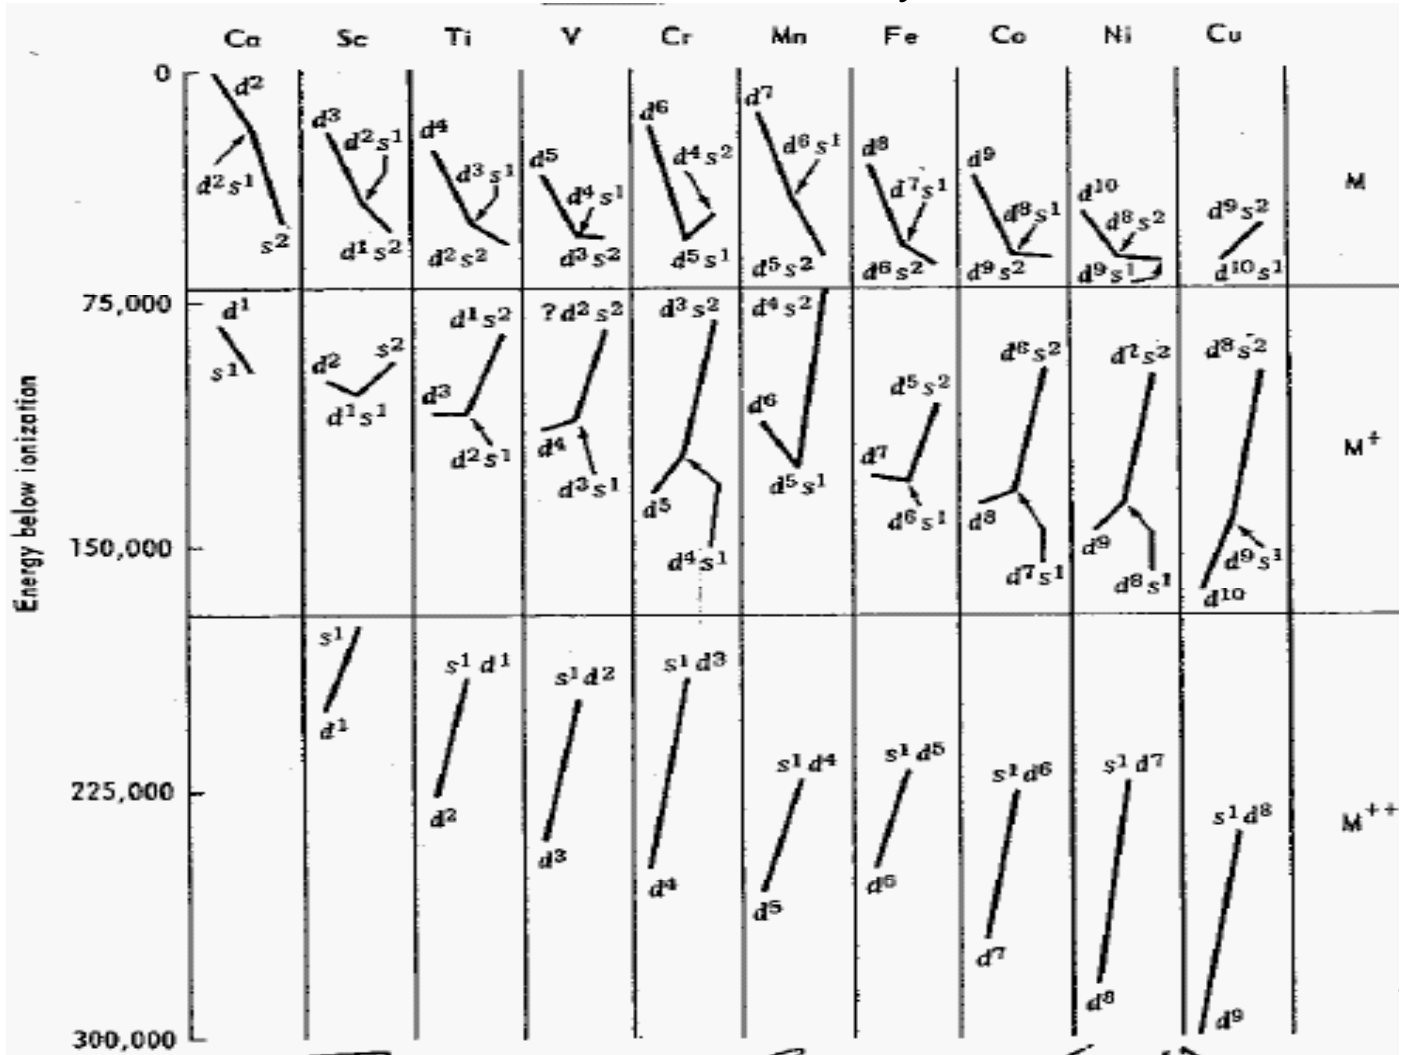 Ca Sc Ti V Cr Mn Fe Co Ni Cu
0
75,000
150,000
225,000
300,000
Energy below ionization
M
M⁺
M⁺⁺
d²
d²s¹
s²
d³
d²s¹
d¹s²
d⁴
d³s¹
d²s²
d⁵
d⁴s¹
d³s²
d⁶
d⁴s²
d⁵s¹
d⁷
d⁶s¹
d⁵s²
d⁸
d⁷s¹
d⁶s²
d⁹
d⁸s¹
d⁹s²
d¹⁰
d⁸s²
d⁹s¹
d⁹s²
d¹⁰s¹
d¹
s¹
d²
s²
d¹s¹
d¹s²
d³
d²s¹
?d²s²
d⁴
d³s¹
d³s²
d⁵
d⁴s¹
d⁴s²
d⁶
d⁵s¹
d⁵s²
d⁷
d⁶s¹
d⁶s²
d⁸
d⁷s¹
s²
d⁹
d⁸s¹
d⁸s²
d⁹s¹
d¹⁰
s¹
d¹
s¹d¹
d²
s¹d²
d³
s¹d³
d⁴
s¹d⁴
d⁵
s¹d⁵
d⁶
s¹d⁶
d⁷
s¹d⁷
d⁸
s¹d⁸
d⁹